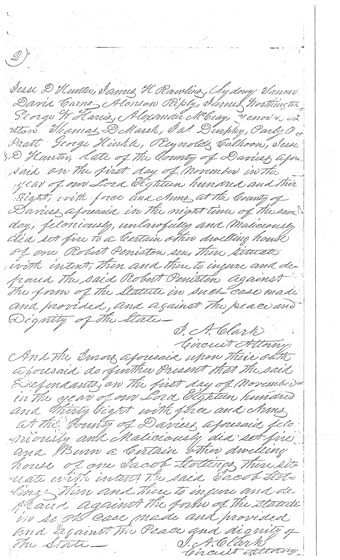 2)
Jesse D Hunter, James H Rawlins, Sydney Tanner
David Carns, Alonson Riply, James Worthington
George W Harris, Alexander McCray,
Thomas D Marsh, Jas Durphy, Parly P
Pratt George Hinkle, Reynolds Cahoon, Jesse
D Hunter, late of the County of Daviess afore
said on the first day of November in the
year of our Lord Eighteen hundred and thir
Eight, with force and Arms, at the County of
Daviess aforesaid in the night time of the same
day, feloniously, unlawfully and Maliciously
did set fire to a Certain other dwelling house
of one Robert Peniston sen then situate
with intent, then and there to injure and de-
fraud the said Robert Peniston against
the form of the Statute in such case made
and provided, and against the peace and
Dignity of the State—
J. A. Clark
Circuit Attorny
And the Jurors aforesaid upon their oath
aforesaid do further Present that the said
Defendants, on the first day of November
in the year of our Lord Eighteen hundred
and thirty Eight with force and Arms
at the County of Daviess aforesaid felo-
niously and Maliciously did set fire
and Burn a Certain other dwelling
house of one Jacob Stollings then sit-
uate with intent the said Jacob Stol-
lings then and there to injure and de
fraud against the form of the statute
in such Case made and provided
and against the Peace and dignity of
the State—
J. A. Clark
Circuit Attorny